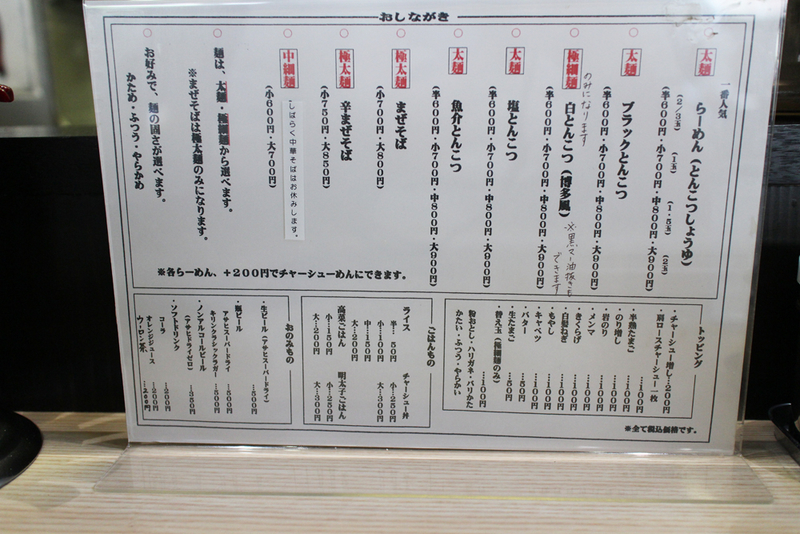 おしながき
太麺
一番人気
らーめん（とんこつしょうゆ）
(2/3玉) (1玉) (1.5玉) (2玉)
(半600円・小700円・中800円・大900円)
太麺
ブラックとんこつ
(半600円・小700円・中800円・大900円)
極細麺
のみになります
白とんこつ（博多風）
※黒マー油抜きもできます
(半600円・小700円・中800円・大900円)
太麺
塩とんこつ
(半600円・小700円・中800円・大900円)
太麺
魚介とんこつ
(半600円・小700円・中800円・大900円)
極太麺
まぜそば
(小700円・大800円)
極太麺
辛まぜそば
(小750円・大850円)
中細麺
・しばらく中華そばはお休みします。
(小600円・大700円)
麺は、太麺・極細麺から選べます。
※まぜそばは極太麺のみになります。
お好みで、麺の固さが選べます。
かため・ふつう・やらかめ
※各らーめん、+200円でチャーシューめんにできます。
トッピング
・チャーシュー増し…200円
・肩ロースチャーシュー一枚 …100円
・半熟たまご …100円
・のり増し …100円
・岩のり …100円
・メンマ …100円
・きくらげ …100円
・白髪ねぎ …100円
・もやし …100円
・キャベツ …100円
・バター …50円
・生たまご …50円
・替え玉（極細麺のみ） …100円
粉おとし・ハリガネ・バリかた
かたい・ふつう・やらかい
ごはんもの
ライス
半…50円
小…100円
中…150円
大…200円
高菜ごはん
小…150円
大…200円
チャーシュー丼
小…250円
大…300円
明太子ごはん
小…250円
大…300円
おのみもの
・生ビール（アサヒスーパードライ） …500円
・瓶ビール
アサヒスーパードライ …500円
キリンクラシックラガー …500円
・ノンアルコールビール
（アサヒドライゼロ） …350円
・ソフトドリンク
コーラ …200円
オレンジジュース …200円
ウーロン茶 …200円
※全て税込価格です。